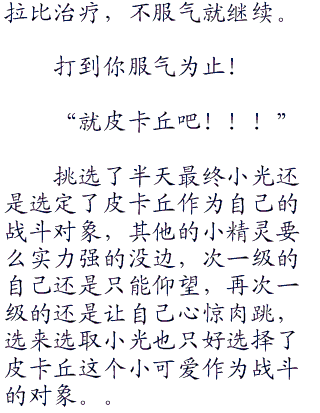 拉比治疗，不服气就继续。
打到你服气为止！
“就皮卡丘吧！！！”
挑选了半天最终小光还
是选定了皮卡丘作为自己的
战斗对象，其他的小精灵要
么实力强的没边，次一级的
自己还是只能仰望，再次一
级的还是让自己心惊肉跳，
选来选取小光也只好选择了
皮卡丘这个小可爱作为战斗
的对象。。